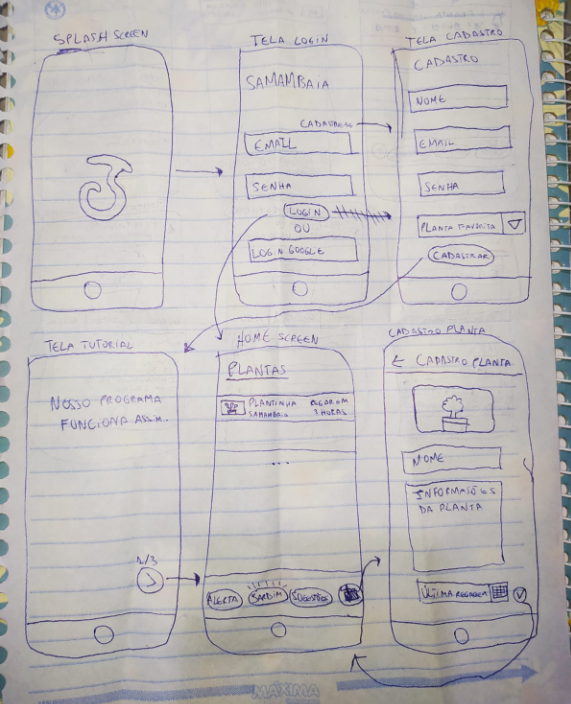 SPLASH SCREEN
TELA LOGIN
SAMAMBAIA
CADASTRO
EMAIL
SENHA
LOGIN
OU
LOGIN GOOGLE
TELA CADASTRO
CADASTRO
NOME
EMAIL
SENHA
PLANTA FAVORITA
CADASTRAR
TELA TUTORIAL
NOSSO PROGRAMA
FUNCIONA ASSIM.
1/3
HOME SCREEN
PLANTAS
PLANTINHA
SAMAMBAIA
REGAR EM
3 HORAS
...
ALERTA
JARDIM
SUGESTÕES
CADASTRO PLANTA
CADASTRO PLANTA
NOME
INFORMAÇÕES
DA PLANTA
ÚLTIMA REGAGEM
MÁXIMA